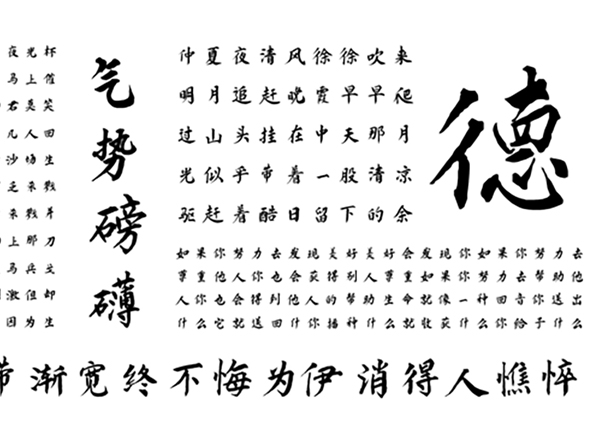 夜光杯
马上催
右莫笑
几人回
沙场生
来戮
来戮
上那刀
马兵
激但却
因为生
气势磅礴
仲夏夜清风徐徐吹来
明月追赶晚霞早早爬
过山头挂在中天那月
光似乎带着一股清凉
驱赶着酷日留下的余
德
如果你努力去发现美好美好会发现你如果你努力去
尊重他人你也会获得别人尊重如果你努力去帮助他
人你也会得到他人的帮助生命就像一种回音你送出
什么它就送回什你播种什么就收获什么你给于什么
带渐宽终不悔为伊消得人憔悴